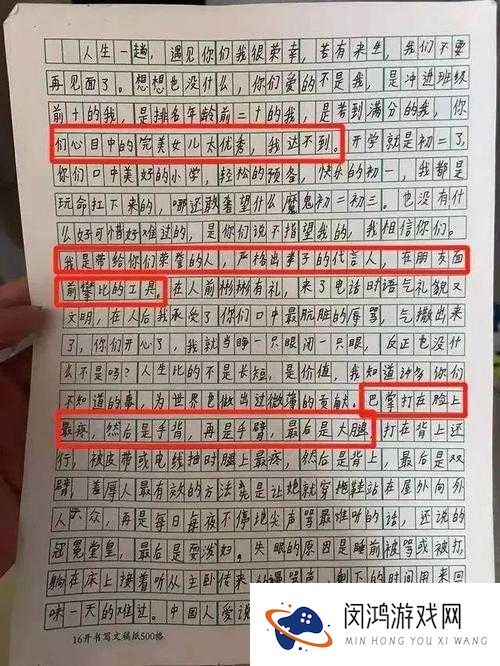 人生一趟，遇见你们我很荣幸，若有来生，我们不要
再见面了。想想也没什么，你们爱的不是我，是冲进班级
前十的我，是排名年龄前二十的我，是考到满分的我，你
们心目中的完美女儿太优秀，我达不到。开学就是初二了，
你们口中美好的小学，轻松的预备，快乐的初一，我都是
玩命扛下来的，哪还敢奢望什么魔鬼初二初三。也没有什
么好可惜好难过的，是你们说不指望我的，我相信你们。
我是带给你们荣誉的人，严格出孝子的代言人，在朋友面
前攀比的工具。在人前彬彬有礼，来了电话时语气礼貌又
文明，在人后我承受了你们口中最肮脏的辱骂，气撒出来
了，你们开心了，我就当睁一只眼闭一只眼，反正也没什
么不是吗？人生比的不是长短，是价值，我知道许多你们
不知道的事，为世界也做出过微薄的贡献。巴掌打在脸上
最疼，然后是手背，再是手臂，最后是大腿，打在背上还
行，被皮带或电线抽时腿上最疼，然后是背上，最后是双
臂，羞辱人最有效的方法是让她就穿拖鞋站在屋外向外
人示众，再是每日每夜不停地尖声骂最难听的话，还说的
冠冕堂皇，最后是耍泼妇，失眠的原因是睡前被骂或被打，
躺在床上接着听从主卧传来的辱骂声，剩下的时间用来回
味一天的难过。中国人爱说
16开书写文稿纸500格
闵鸿游戏网
MIN HONG YOU XI WANG